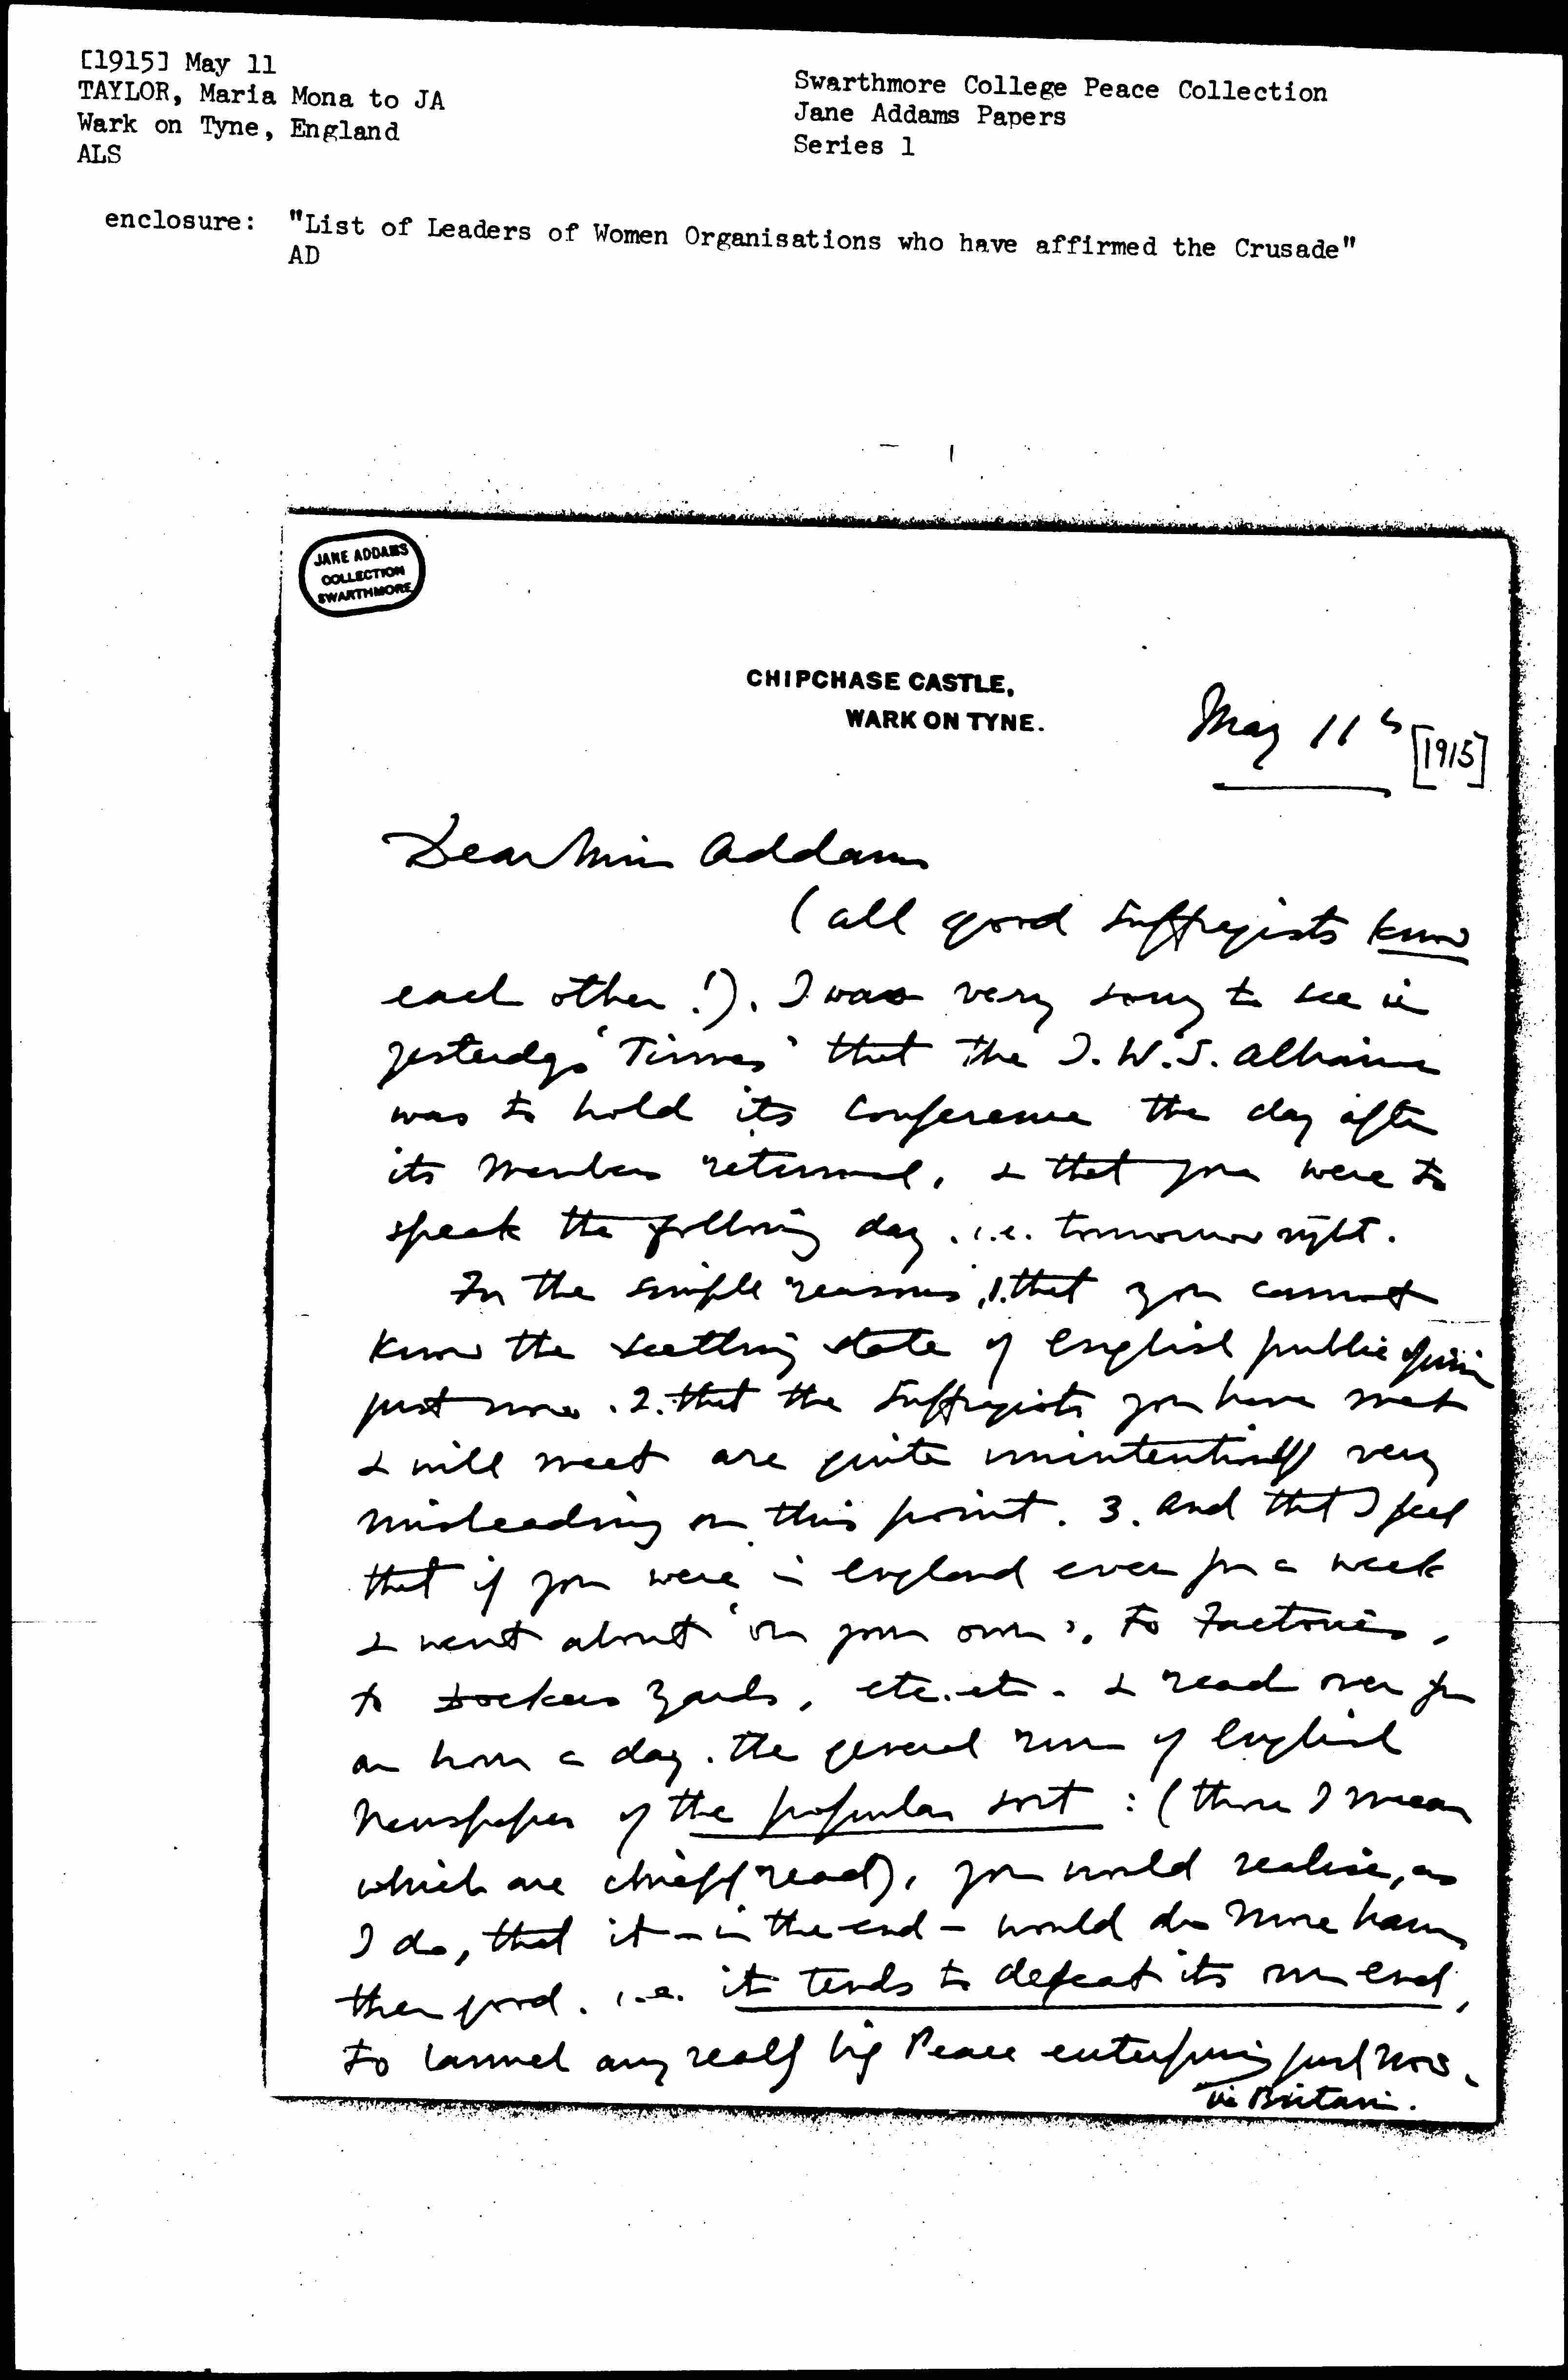 [1915] May 11
TAYLOR, Maria Mona to JA
Wark on Tyne, England
ALS
Swarthmore College Peace Collection
Jane Addams Papers
Series 1
enclosure: "List of Leaders of Women Organisations who have affirmed the Crusade"
AD
JANE ADDAMS
COLLECTION
SWARTHMORE
CHIPCHASE CASTLE,
WARK ON TYNE.
May 11th [1915]
Dear Miss Addams
(all good Suffragists know
each other!). I was very sorry to see in
yesterdys 'Times' that the I.W.S. Alliance
was to hold its Conference the day after
its Members returned, & that you were to
speak the following day. i.e. tomorrow night.
For the simple reasons, 1. that you cannot
know the seething state of English public opinion
just now. 2. that the Suffragists you have met
& will meet are quite unintentionally very
misleading on this point. 3. And that I feel
that if you were in England even for a week
& went about 'on your own', to Factories,
to Dockers yards, etc. etc. & read over for
an hour a day. the general run of English
Newspapers of the popular sort: (those I mean
which are chiefly read), you would realise, as
I do, that it - in the end - would do more harm
than good. i.e. it tends to defeat its own end,
to any really big Peace enterprise just now.
in Britain.